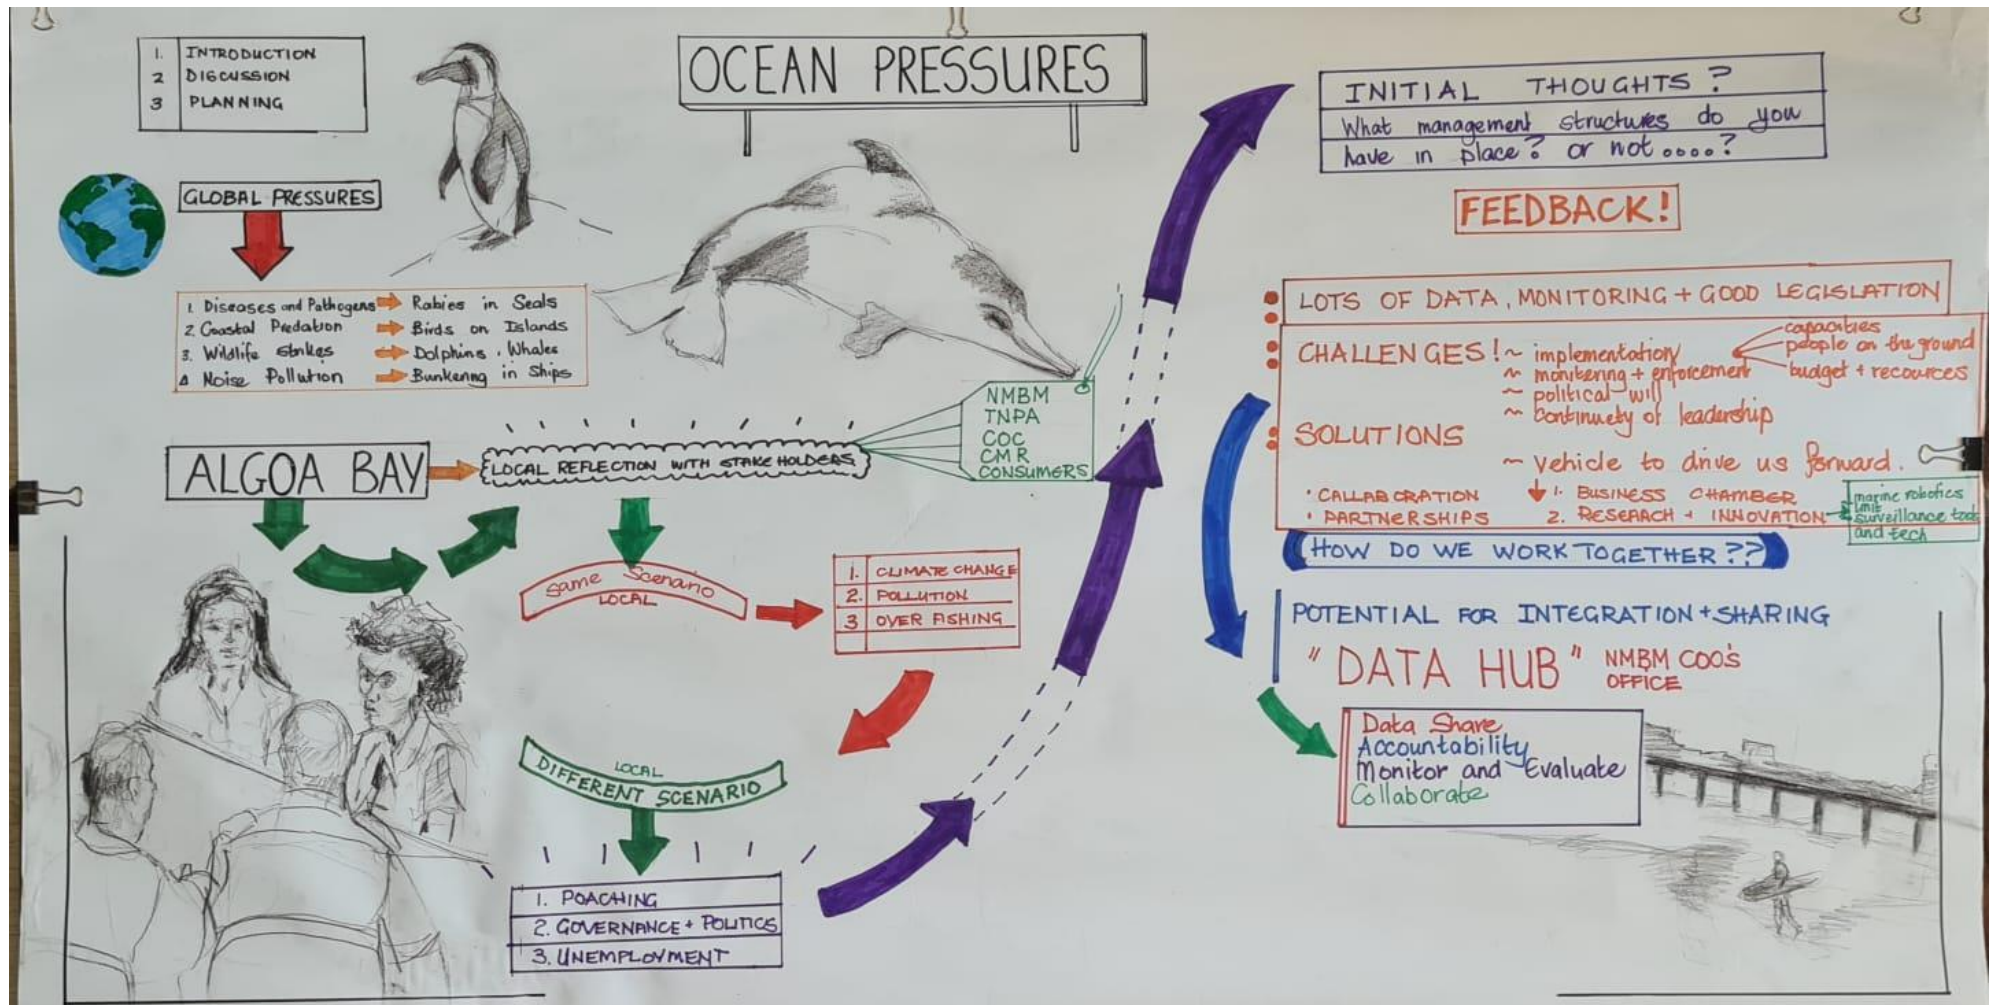 OCEAN PRESSURES
1. INTRODUCTION
2 DISCUSSION
3 PLANNING
GLOBAL PRESSURES
1. Diseases and Pathogens Rabies in Seals
2. Coastal Predation Birds on Islands
3. Wildlife strikes Dolphins, Whales
4 Noise Pollution Bunkering in Ships
ALGOA BAY
LOCAL REFLECTION WITH STAKE HOLDERS
NMBM
TNPA
COC
CMR
CONSUMERS
Same Scenario
LOCAL
1. CLIMATE CHANGE
2. POLLUTION
3 OVER FISHING
LOCAL
DIFFERENT SCENARIO
1. POACHING
2. GOVERNANCE + POLITICS
3. UNEMPLOYMENT
INITIAL THOUGHTS?
What management structures do you
have in place? or not....?
FEEDBACK!
LOTS OF DATA, MONITORING + GOOD LEGISLATION
CHALLENGES! ~ implementation
capacities
people on the ground
budget + recources
~ monitering + enforcement
~ political will
~ continuety of leadership
SOLUTIONS
~ vehicle to drive us forward.
• CALLABORATION
• PARTNERSHIPS
1. BUSINESS CHAMBER
2. RESEARCH + INNOVATION
marine robotics
unit
surveillance tools
and tech
HOW DO WE WORK TOGETHER??
POTENTIAL FOR INTEGRATION + SHARING
"DATA HUB" NMBM COO'S
OFFICE
Data Share
Accountability
Monitor and Evaluate
Collaborate